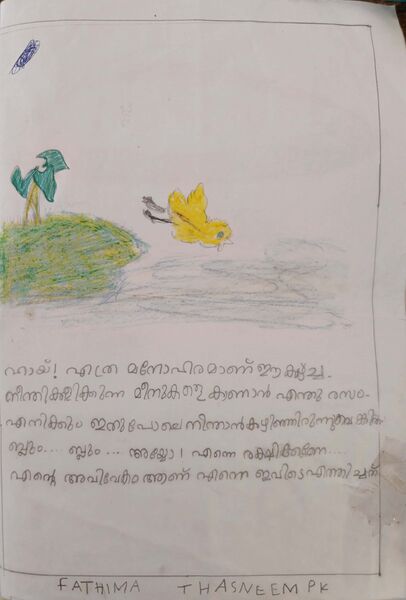 ഹായ്! എത്ര മനോഹരമാണ് ഈ കാഴ്ച്ച.
നീന്തികളിക്കുന്ന മീനുകളെ കാണാൻ എന്തു രസം.
എനിക്കും ഇതുപോലെ നീന്താൻ കഴിഞ്ഞിരുന്നുവെങ്കിൽ
ബ്ലും.... ബ്ലും .... അയ്യോ! എന്നെ രക്ഷിക്കണേ....
എന്റെ അവിവേകം ആണ് എന്നെ ഇവിടെ എത്തിച്ചത്
FATHIMA THASNEEM PK